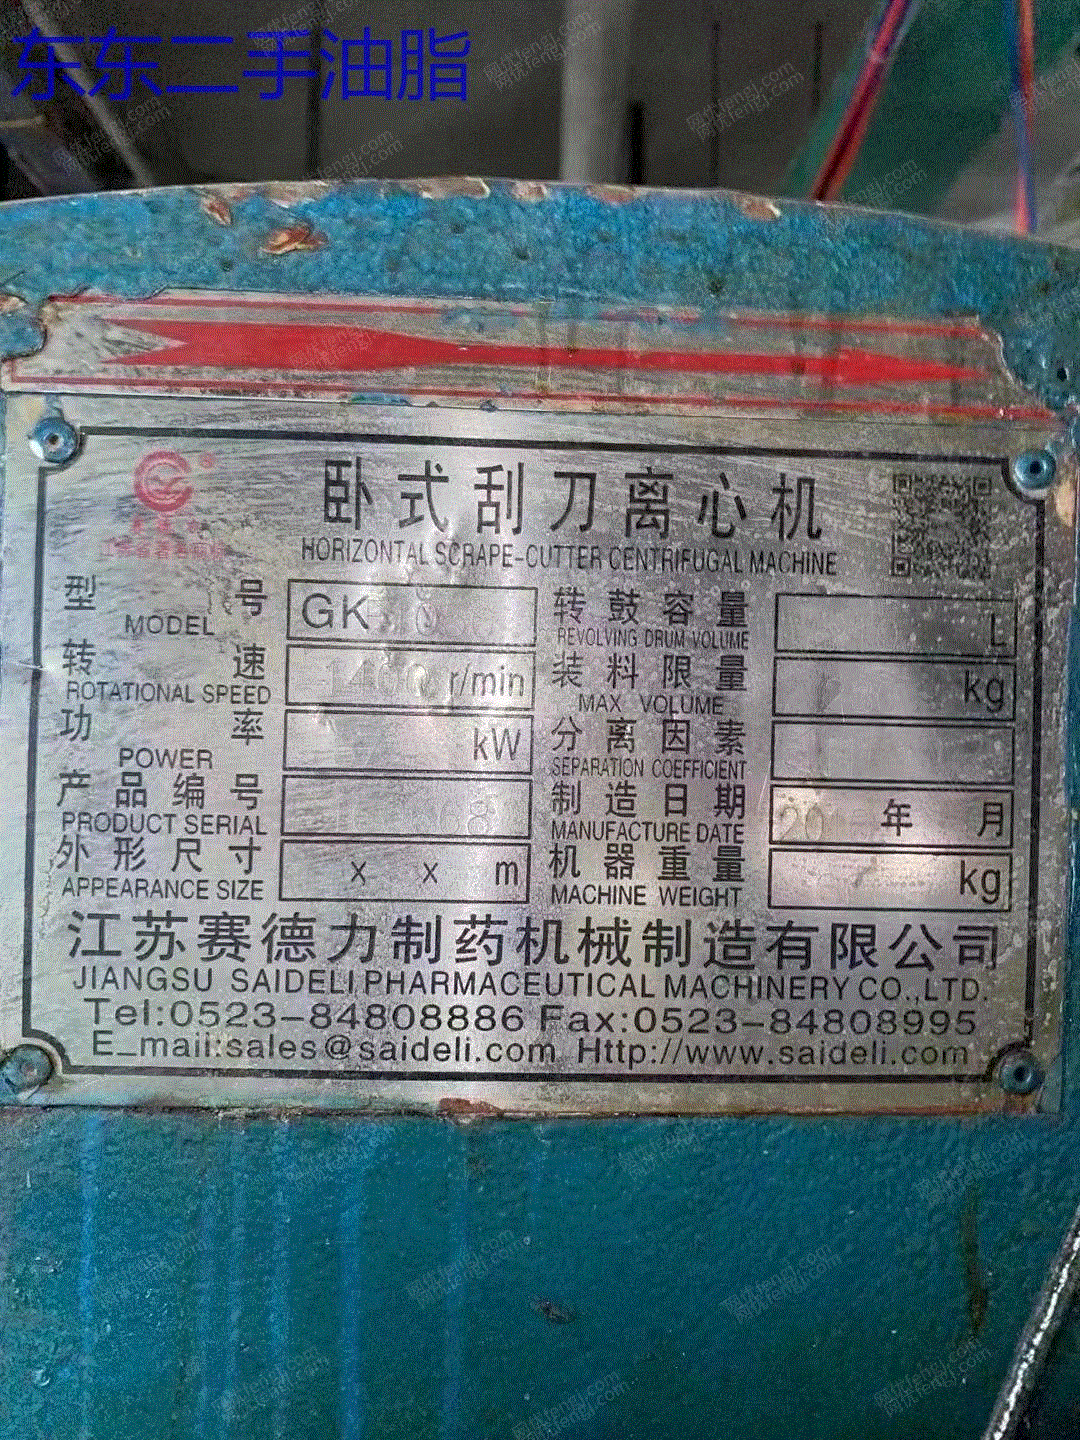 东东二手油脂
卧式刮刀离心机
HORIZONTAL SCRAPE-CUTTER CENTRIFUGAL MACHINE
型号 MODEL GK
转鼓容量 REVOLVING DRUM VOLUME L
转速 ROTATIONAL SPEED 1400 r/min
装料限量 MAX VOLUME kg
功率 POWER kW
分离因素 SEPARATION COEFFICIENT
产品编号 PRODUCT SERIAL
制造日期 MANUFACTURE DATE 20 年 月
外形尺寸 APPEARANCE SIZE x x m
机器重量 MACHINE WEIGHT kg
江苏赛德力制药机械制造有限公司
JIANGSU SAIDELI PHARMACEUTICAL MACHINERY CO.,LTD.
Tel:0523-84808886 Fax:0523-84808995
E_mail:sales@saideli.com Http://www.saideli.com